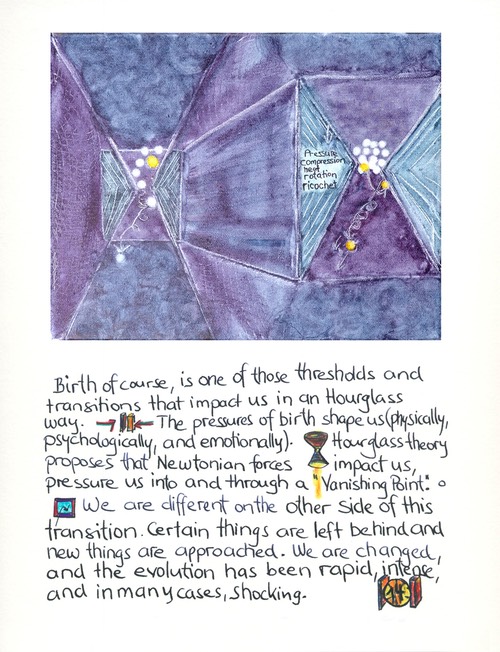 Pressure
compression
heat
rotation
ricochet
Birth of course, is one of those thresholds and
transitions that impact us in an Hourglass
way. The pressures of birth shape us (physically,
psychologically, and emotionally). Hourglass theory
proposes that Newtonian forces impact us,
pressure us into and through a "Vanishing Point".
We are different on the other side of this
transition. Certain things are left behind and
new things are approached. We are changed,
and the evolution has been rapid, intense,
and in many cases, shocking.